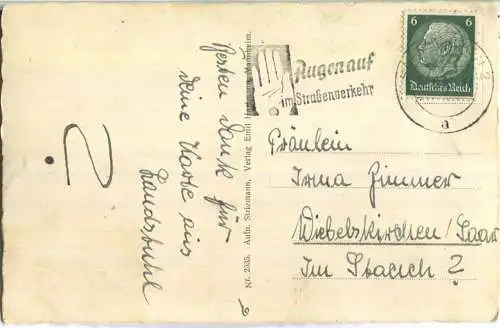 Besten Dank für
deine Karte aus
Landstuhl
Nr. 2335. Aufn. Striemann, Verlag Emil Mannheim.
Augen auf
im Straßenverkehr
6 6
Deutsches Reich
a
Fräulein
Irma Zimmer
Wiebelskirchen/Saar
Im Stauch 2